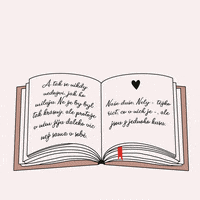 A tak se nikdy
nedoví, jak ho
miluju. Ne že by byl
tak krásný, ale protože
v něm žiju daleko víc
než sama v sobě.
Naše duše Nelly - těžko
říct, co v nich je -, ale
jsou z jednoho kusu.